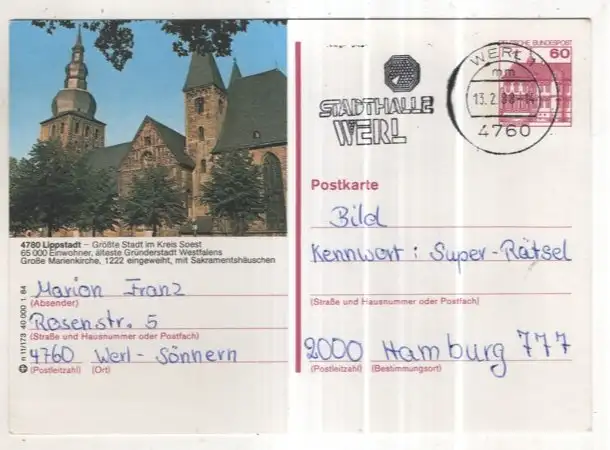 DEUTSCHE BUNDESPOST
60
WERL
mm
13.2.88-14
4760
STADTHALLE
WERL
4780 Lippstadt – Größte Stadt im Kreis Soest
65 000 Einwohner, älteste Gründerstadt Westfalens
Große Marienkirche, 1222 eingeweiht, mit Sakramentshäuschen
Marion Franz
(Absender)
Rosenstr. 5
(Straße und Hausnummer oder Postfach)
4760 Werl - Sönnern
(Postleitzahl) (Ort)
n 11/173 40 000 1. 84
Postkarte
Bild
Kennwort : Super-Rätsel
(Straße und Hausnummer oder Postfach)
2000 Hamburg 777
(Postleitzahl) (Bestimmungsort)